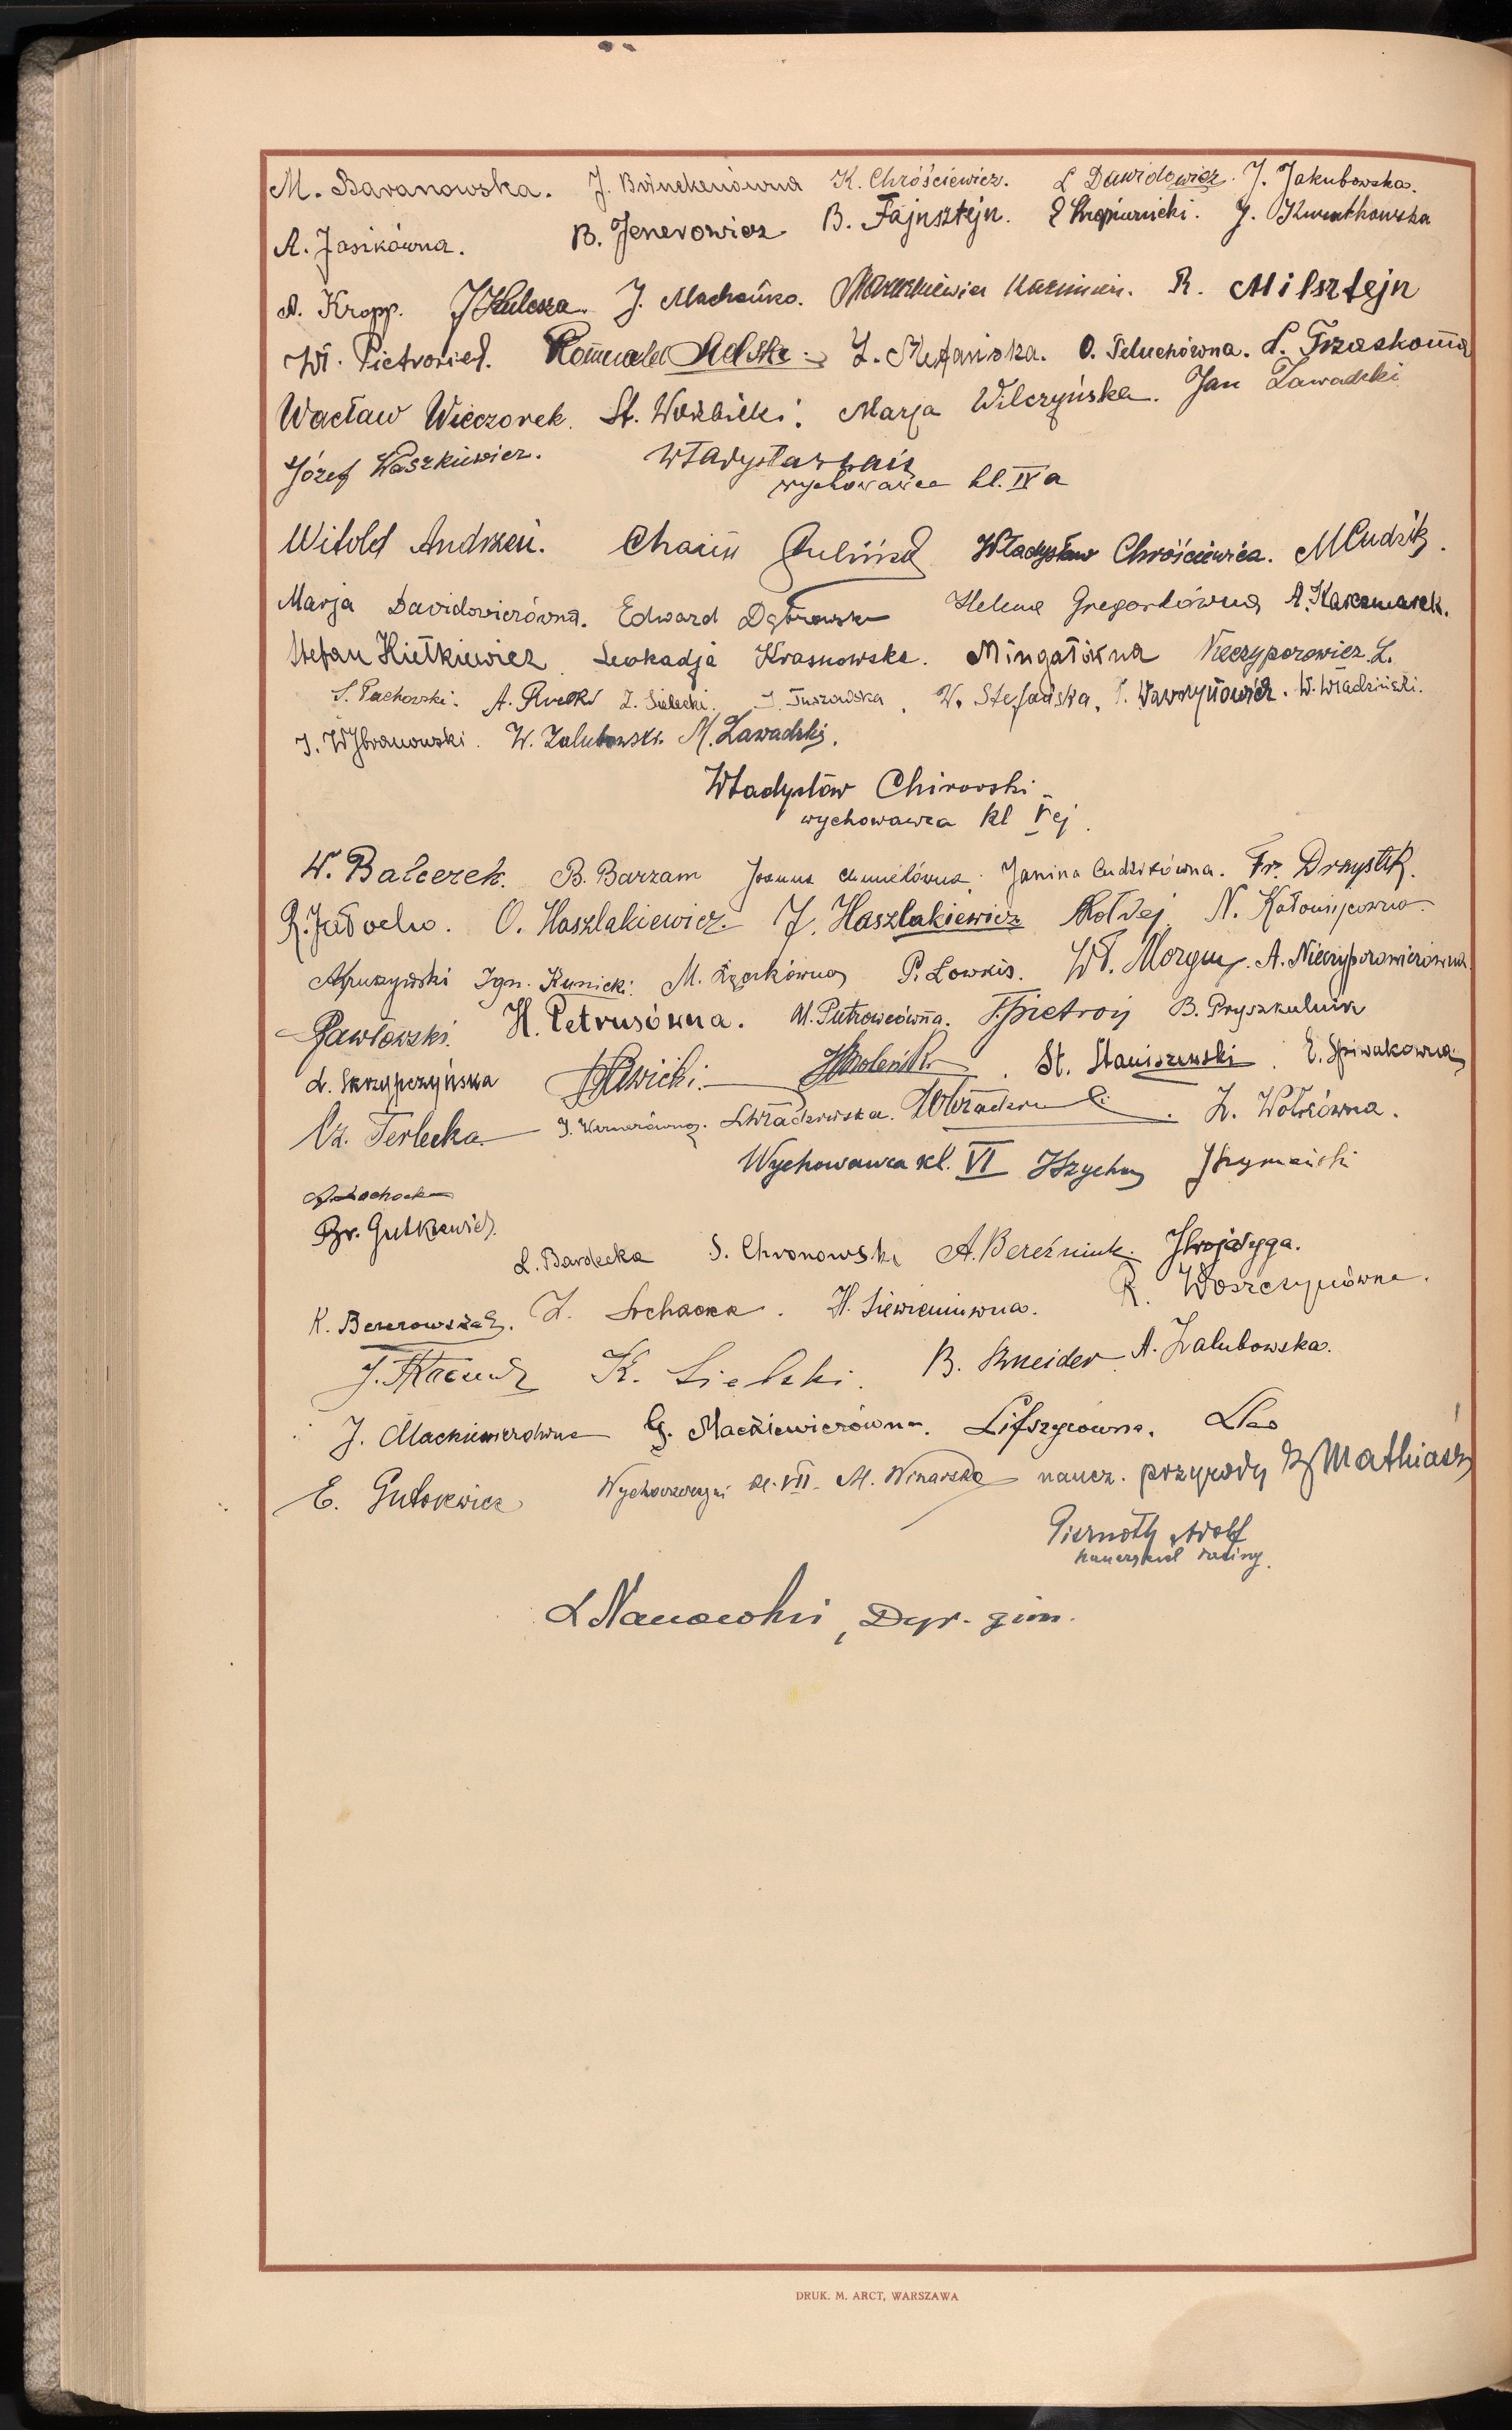 M. Baranowska. J. Brinckenówna K. Chróściewicz. L Dawidowicz. J. Jakubowska.
A. Jasikówna. B. Jenerowicz B. Fajnsztejn. J. Kwiatkowska
A. Kropp. J Kulesza. J. Machońko. Marcinkiewicz Kazimierz. R. Milsztejn
Wł. Pietroniel. Romuald Sielski. Z. Stefańska. O. Teluchówna. L.
Wacław Wieczorek. St. Woźbicki. Marja Wilczyńska. Jan Zawadzki
Józef Waszkiewicz. Władysław
wychowawca kl. IV a
Witold Andrzeń. Chaim Władysław Chróściewicz. M Cudzik.
Marja Davidowiczówna. Edward Dąbrowski Helena Gregorkówna A. Kaczmarek.
Stefan Kiełkiewicz Leokadja Krasnowska. Mingałówna Nieczyporowicz L.
S. Pachowski. A. Z. Sielecki. J. Tuszowska, W. Stefańska, Wawrzynowicz. W. Władziński.
J. Wybranowski. W. Zalubowski. M. Zawadzki.
Władysław Chirowski
wychowawca kl Vej.
W. Balcerek. B. Barzam Joanna Chmielówna. Janina Cudzikówna. Fr. Drzystek.
R. Jałocho. O. Haszlakiewicz. J. Haszlakiewicz Kołdej N.
Kruszyński Ign. Kunicki. M. Łęckówna P. Lowkis. Wł. A. Nieczyporowiczówna.
Pawłowski. H. Petrusówna. M. Pietrowcówna. Pietroń B. Pryszkulnik
L. Skrzypczyńska Sawicki. St. Staniszewski. E. Spiwakówna
Cz. Terlecka J. Wernerówna. Z. Wołkówna.
Wychowawca kl. VI Szymański
Br. Gutkiewicz.
L. Bardecka S. Chronowski A. Bereźniuk. Trojałyga.
K. Bererowska. Z. Sochacka. H. Siewieniuwna. R. Woszczynówna.
J. K. Sielski. B. Szneider A. Zalubowska.
J. Mackiewiczówna G. Mackiewiczówna. Lifszycówna.
E. Gutkiewicz Wychowawczyni kl. VII. M. Winarska naucz. przyrody Mathiasz
Piernoth Adolf
nauczyciel łaciny.
L Nanowski, Dyr. gim.
DRUK. M. ARCT, WARSZAWA